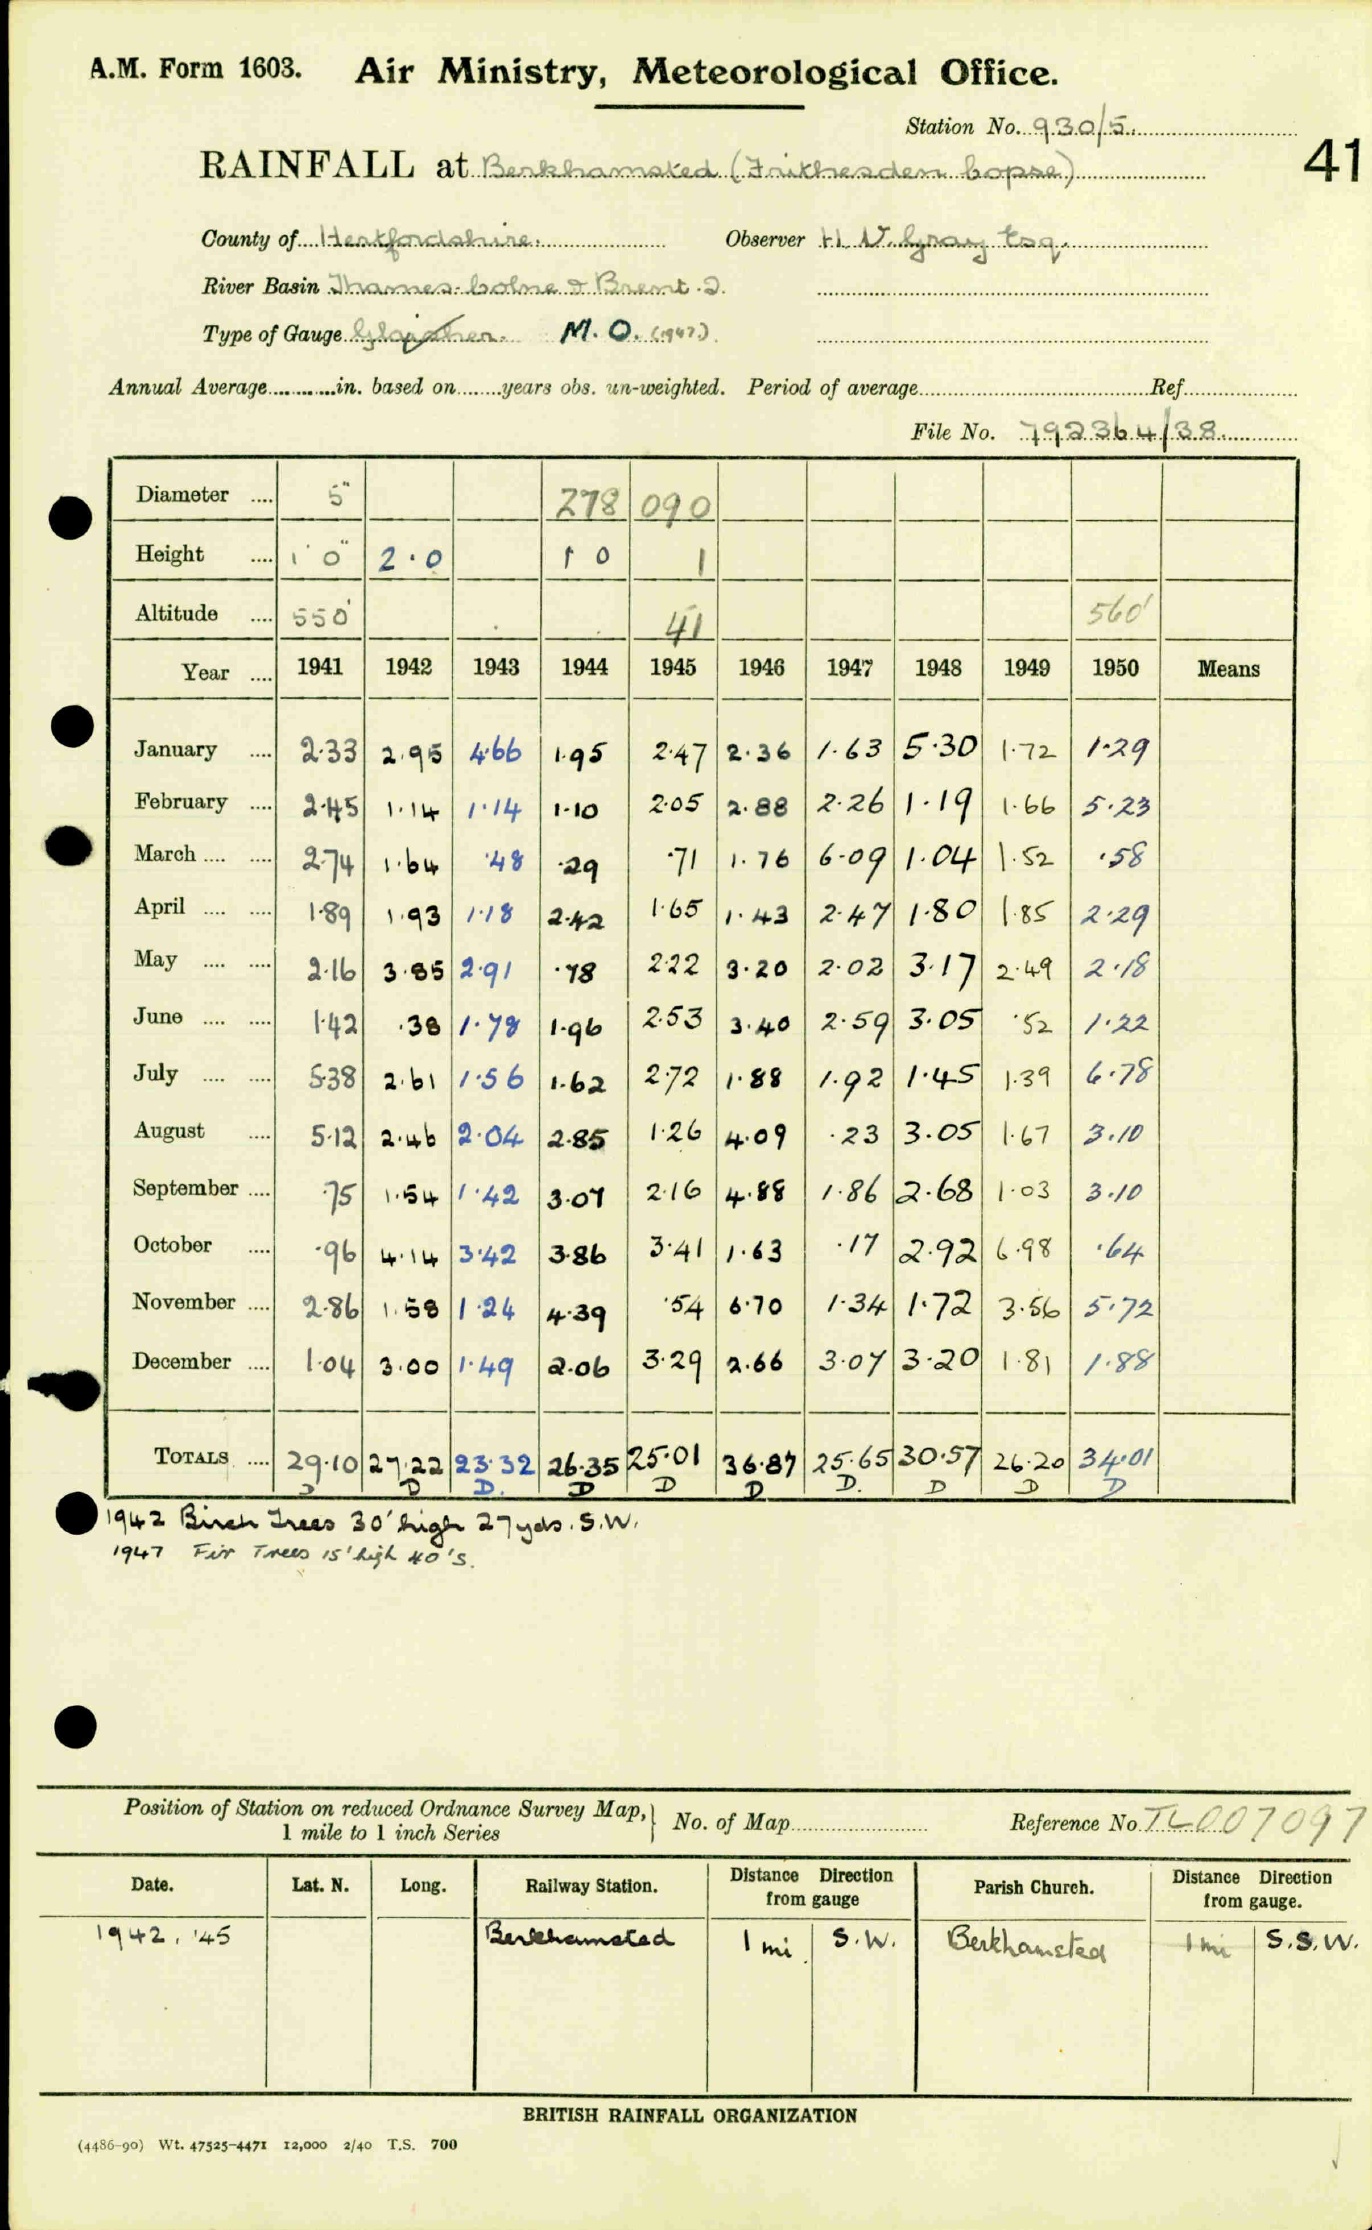 A.M. Form 1603. Air Ministry, Meteorological Office.
Station No. 930/5.
41
RAINFALL at Berkhamsted (Frithesden Copse)
County of Hertfordshire. Observer H. V. Gray Esq.
River Basin Thames. Colne & Brent. 2.
Type of Gauge Glaisher. M.O. (1947.)
Annual Average in. based on years obs. un-weighted. Period of average Ref.
File No. 792364/38
Diameter 5" 278 090
Height 1' 0" 2.0 1 0 1
Altitude 550' 41 560'
Year 1941 1942 1943 1944 1945 1946 1947 1948 1949 1950 Means
January 2.33 2.95 4.66 1.95 2.47 2.36 1.63 5.30 1.72 1.29
February 2.45 1.14 1.14 1.10 2.05 2.88 2.26 1.19 1.66 5.23
March 2.74 1.64 .48 .29 .71 1.76 6.09 1.04 1.52 .58
April 1.89 1.93 1.18 2.42 1.65 1.43 2.47 1.80 1.85 2.29
May 2.16 3.85 2.91 .78 2.22 3.20 2.02 3.17 2.49 2.18
June 1.42 .38 1.78 1.96 2.53 3.40 2.59 3.05 .52 1.22
July 5.38 2.61 1.56 1.62 2.72 1.88 1.92 1.45 1.39 6.78
August 5.12 2.46 2.04 2.85 1.26 4.09 .23 3.05 1.67 3.10
September .75 1.54 1.42 3.07 2.16 4.88 1.86 2.68 1.03 3.10
October .96 4.14 3.42 3.86 3.41 1.63 .17 2.92 6.98 .64
November 2.86 1.58 1.24 4.39 .54 6.70 1.34 1.72 3.56 5.72
December 1.04 3.00 1.49 2.06 3.29 2.66 3.07 3.20 1.81 1.88
TOTALS 29.10 27.22 23.32 26.35 25.01 36.87 25.65 30.57 26.20 34.01
D D D. D D D D. D D D
1942 Birch Trees 30' high 27 yds. S.W.
1947 Fir Trees 15' high 40' S.
Position of Station on reduced Ordnance Survey Map, 1 mile to 1 inch Series No. of Map Reference No TL007097
Date. Lat. N. Long. Railway Station. Distance Direction from gauge Parish Church. Distance Direction from gauge.
1942, '45 Berkhamsted 1 mi. S.W. Berkhamsted 1 mi S.S.W.
BRITISH RAINFALL ORGANIZATION
(4486-90) Wt. 47525-4471 12,000 2/40 T.S. 700